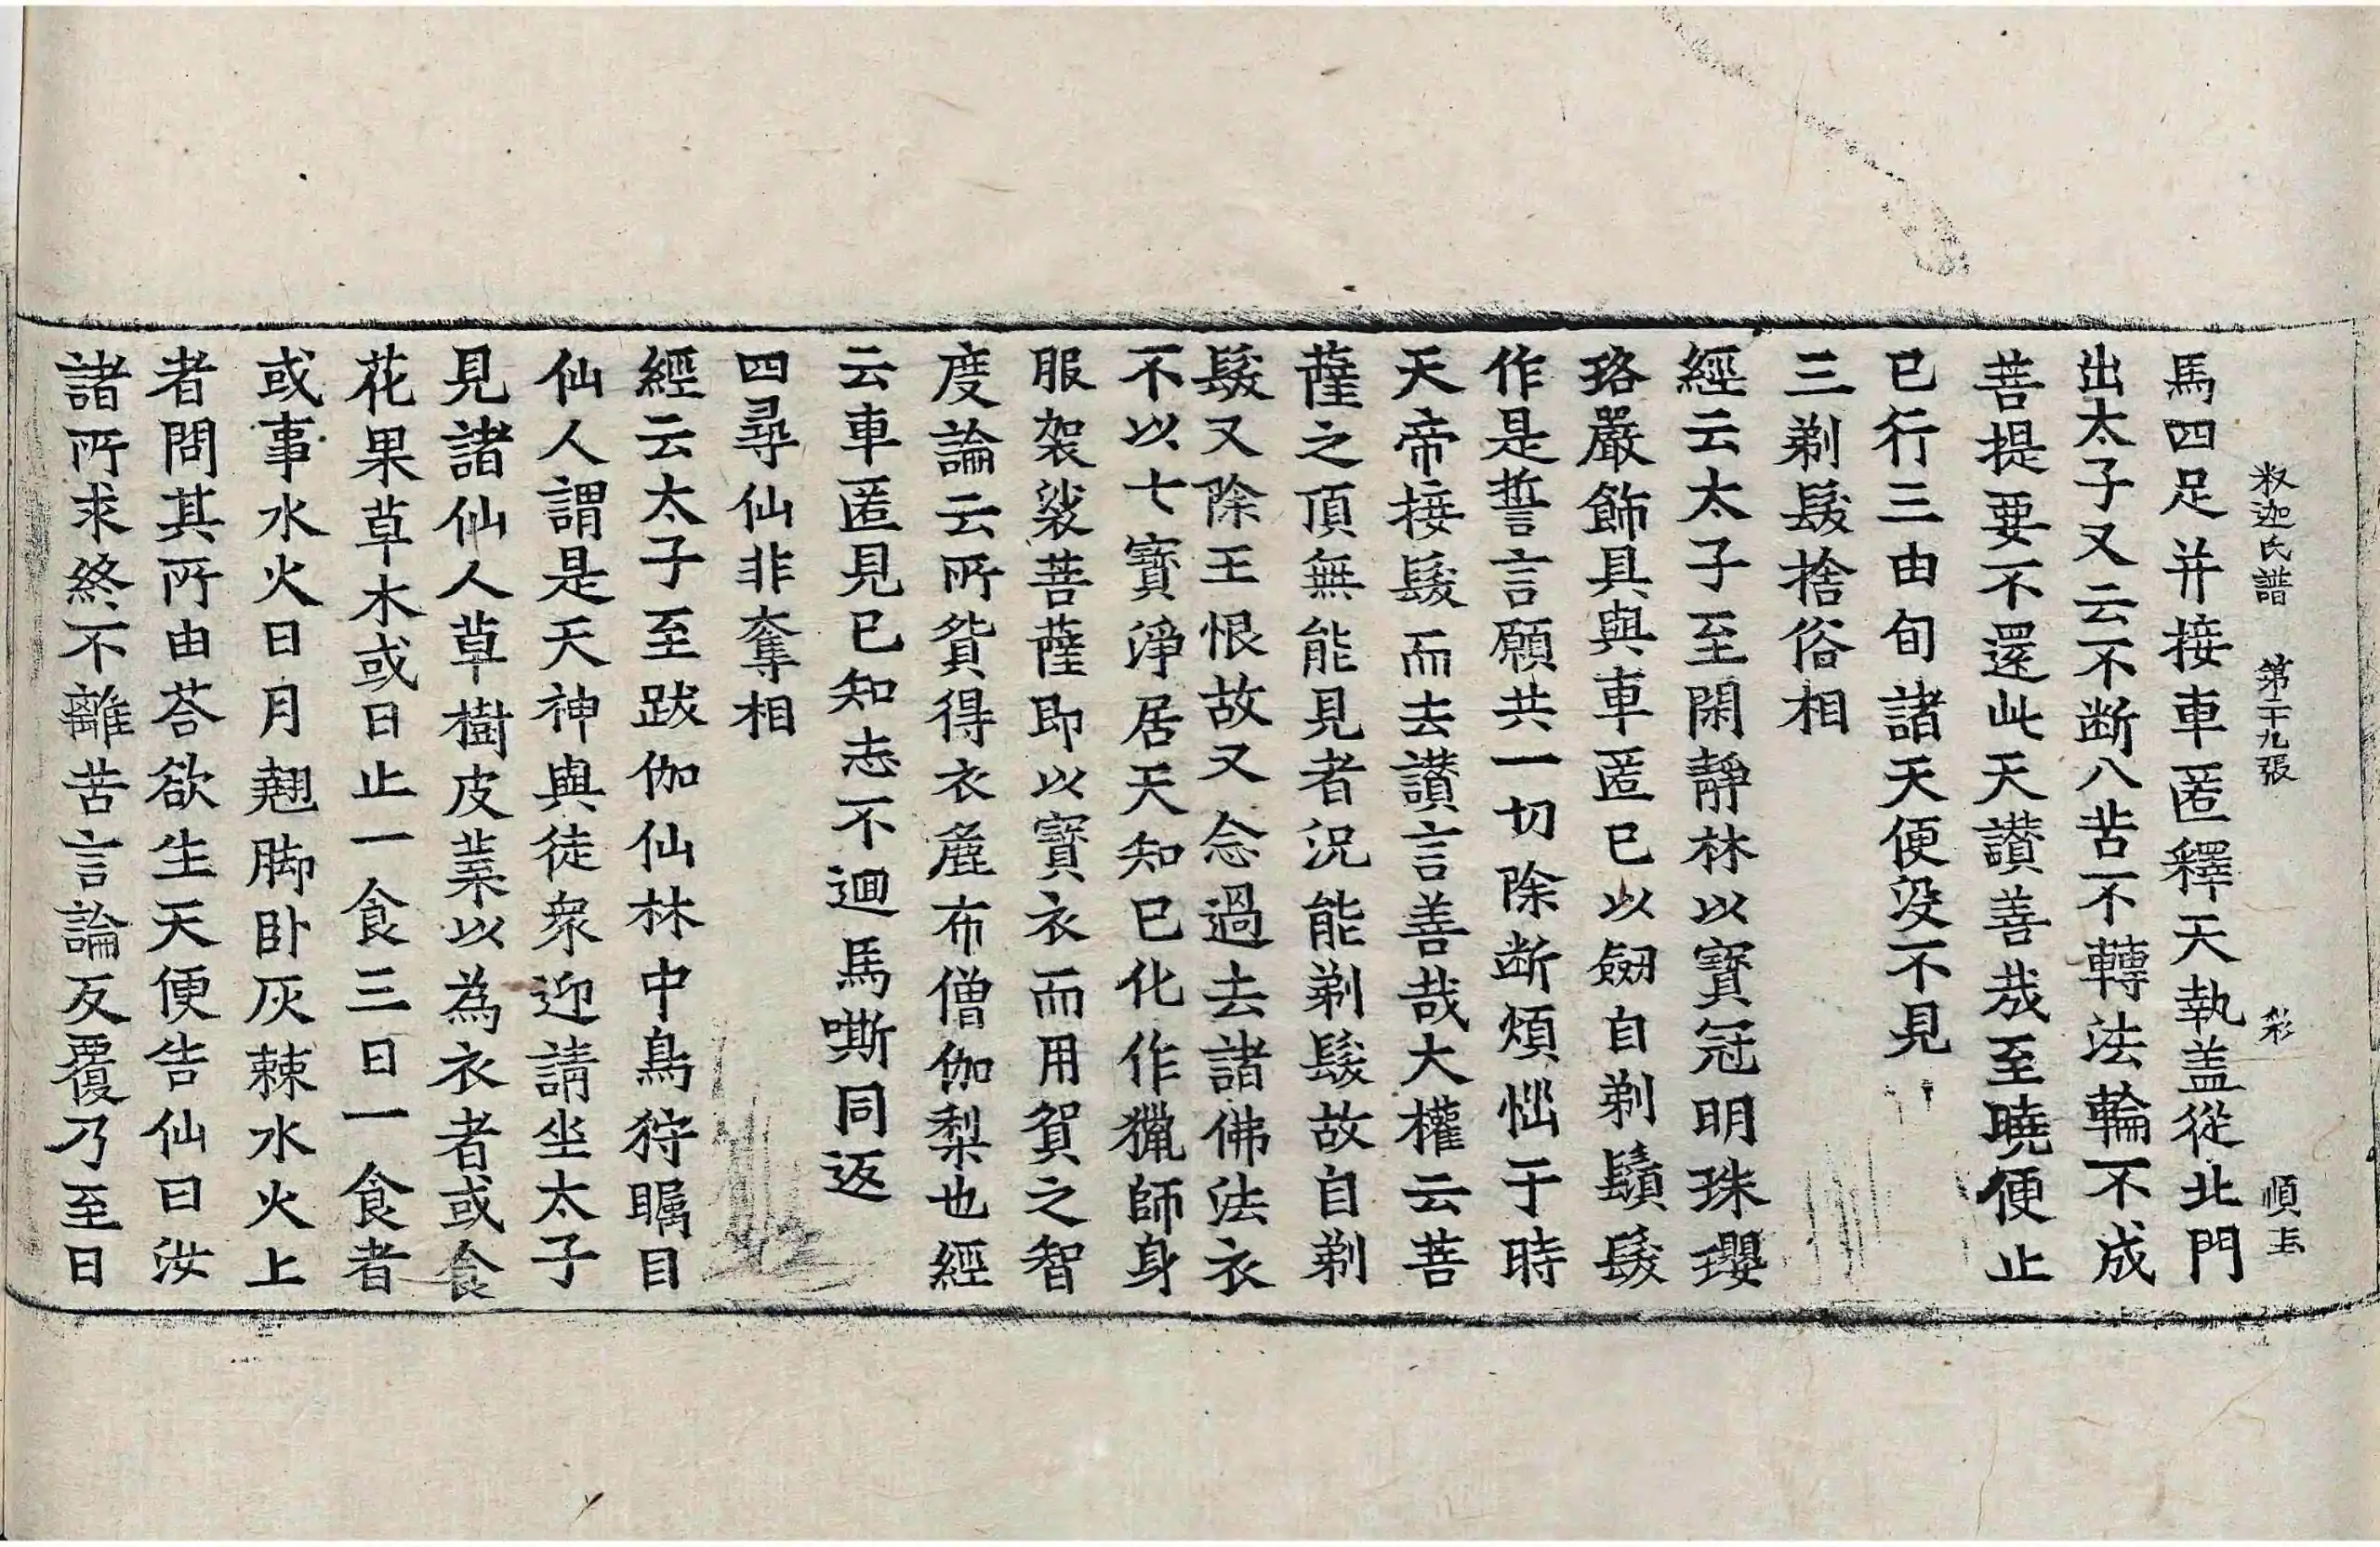 釈迦氏譜 第二十九張 彩 順玉
馬四足并接車匿釋天執盖從北門
出太子又云不断八苦不轉法輪不成
菩提要不還此天讃善哉至曉便止
已行三由旬諸天便没不見
三剃髮捨俗相
經云太子至閑靜林以寳冠明珠瓔
珞嚴飾具與車匿已以劒自剃鬚髮
作是誓言願共一切除断煩惱于時
天帝接髮而去讃言善哉大權云菩
薩之頂無能見者況能剃髮故自剃
髮又除王恨故又念過去諸佛法衣
不以七寳淨居天知已化作獵師身
服袈裟菩薩即以寳衣而用貿之智
度論云所貿得衣麁布僧伽梨也經
云車匿見已知志不迴馬嘶同返
四尋仙非奪相
經云太子至跋伽仙林中鳥狩矚目
仙人謂是天神與徒衆迎請坐太子
見諸仙人草樹皮葉以為衣者或食
花果草木或日止一食三日一食者
或事水火日月翹脚卧灰棘水火上
者問其所由荅欲生天便告仙曰汝
諸所求終不離苦言論反覆乃至日